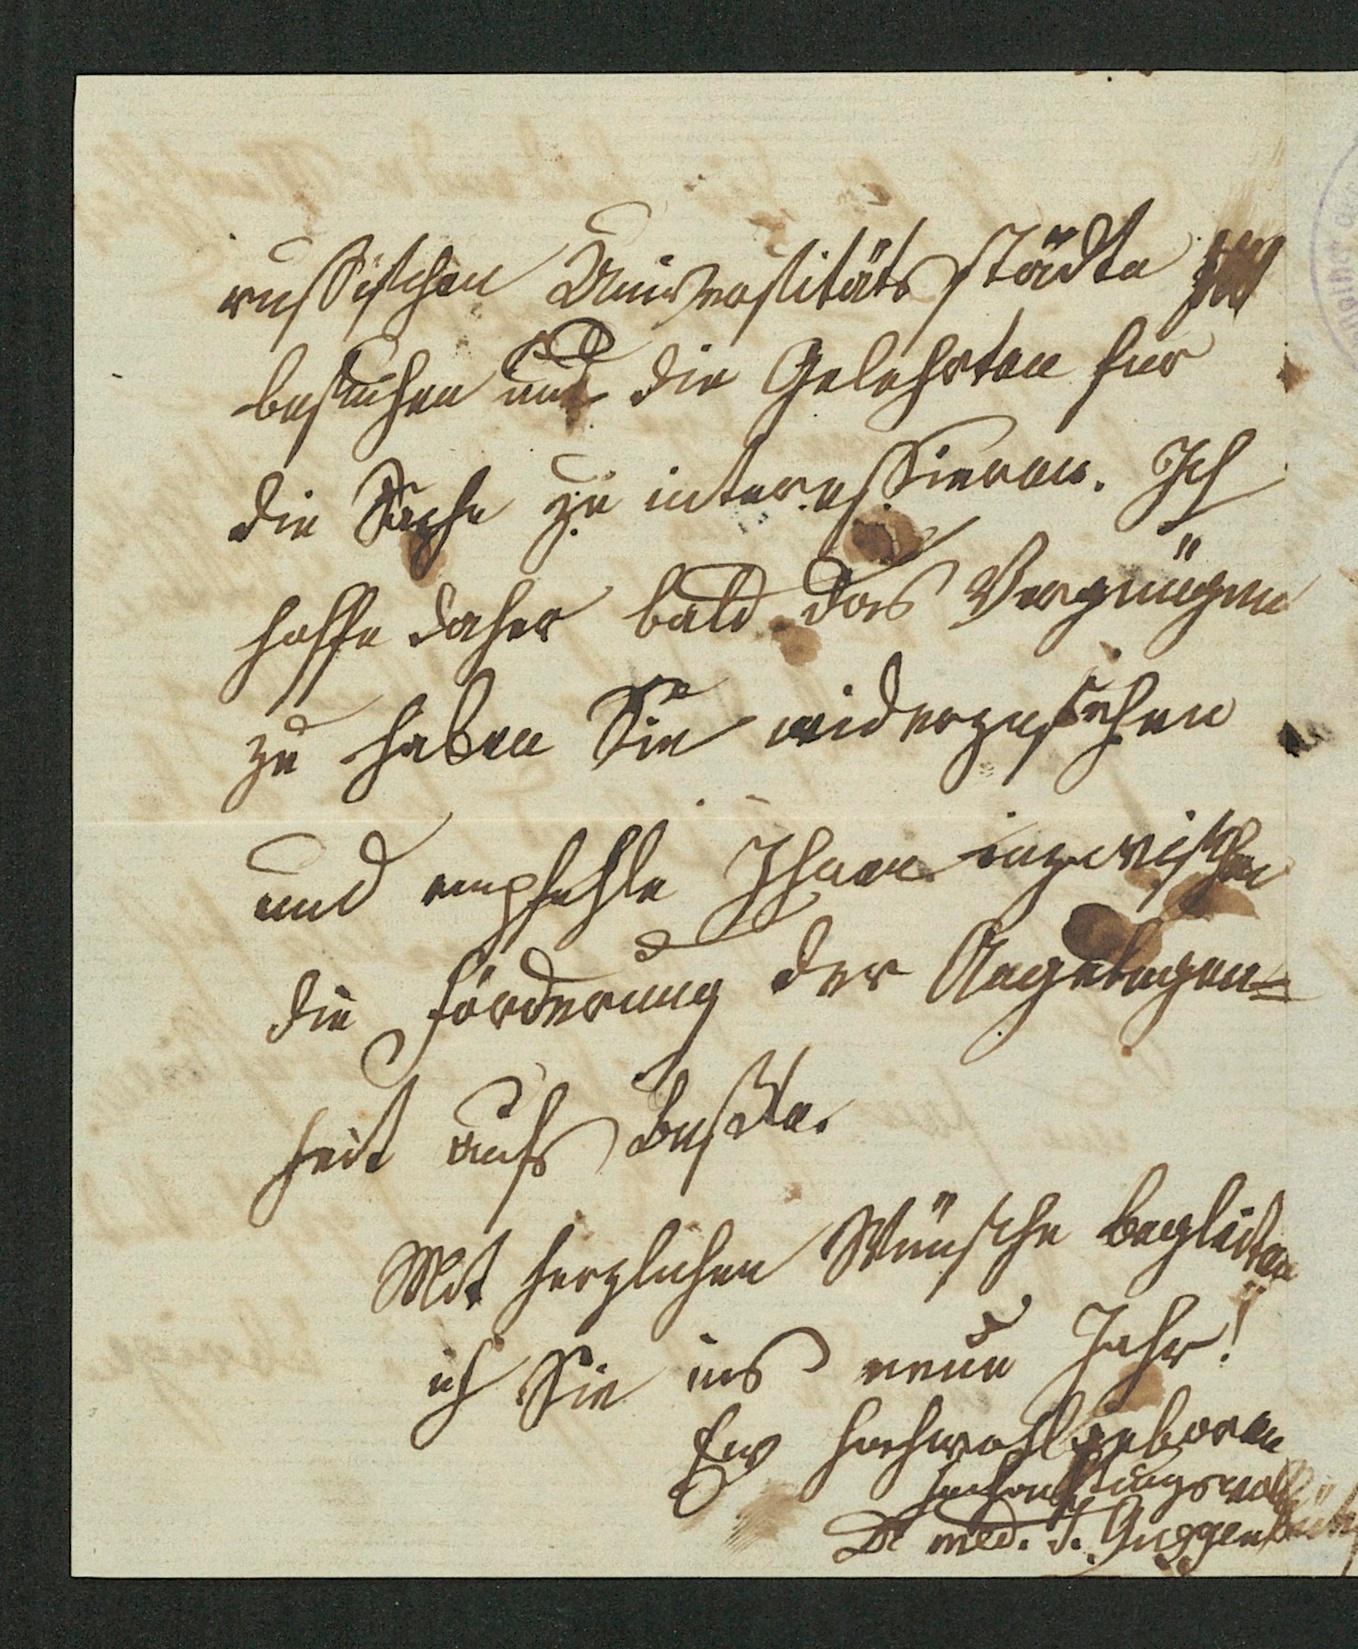 russischen Universitäts städte
besuchen und die Gelehrten fur
die Sache zu interessieren. Ich
hoffe daher bald das Vergnügen
zu haben Sie widerzusehen
und empfehle Ihnen inzwischen
die Förderung der Angelegen=
heit aufs Beßte.
Mit herzlichen Wünsche begleiten
ich Sie ins neue Jahr!
Ew Hochwohlgeboren
hochachtungsvoll
Dr med. J. Guggenbüh